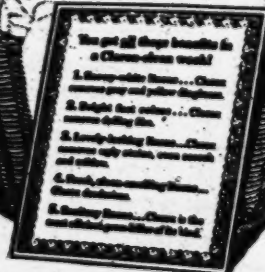 You get all these benefits in
a Clorox-clean wash!
1. Snowy-white linens... Clorox
removes gray and yellow dinginess.
2. Bright fast colors... Clorox
removes dulling film.
3. Lovely-looking linens... Clorox
removes ugly stains, even scorch
and mildew.
4. Fresh, clean-smelling linens...
Clorox deodorizes.
5. Sanitary linens... Clorox is the
most efficient germ-killer of its kind!